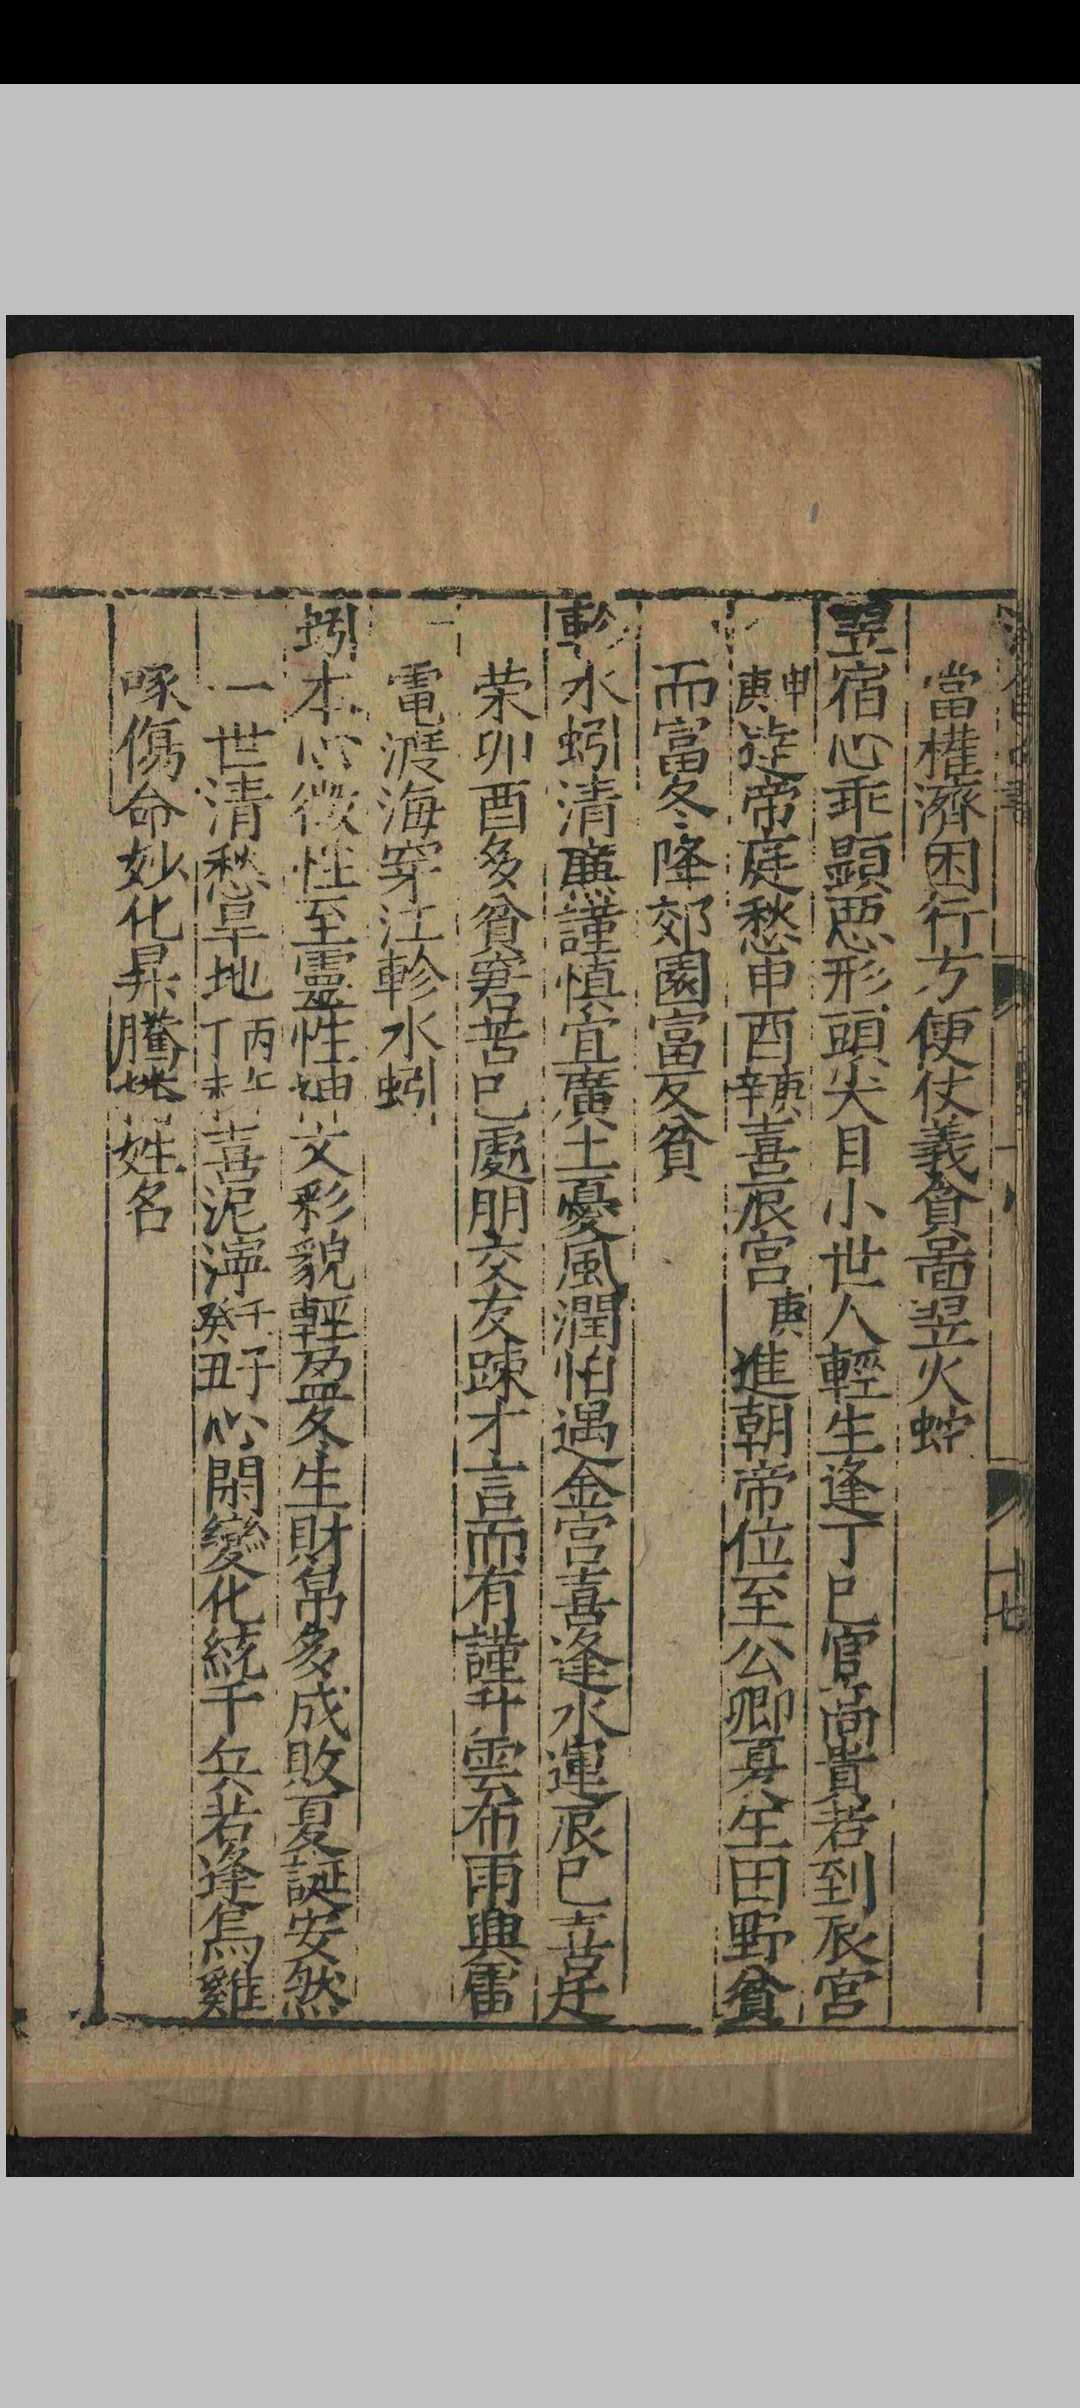 當權濟困行方便仗義貪啚翌火蛇
翌宿心乖顕惡形頭尖目小世人輕生逢丁巳官高貴若到辰宮
申庚遊帝庭愁申酉庚辛喜辰宮庚進朝帝位至公卿夏生田野貧
而富冬降郊園富反貧
軫水蚓清廉謹慎宜廣土憂風潤怕遇金宮喜逢水運辰巳喜廷
荣卯酉多貧窘苦巳處朋交友踈才言而有謹升雲布雨興雷
電渡海穿江軫水蚓
蚓本心徴性至靈性 文彩貌輕盈冬生財帛多成敗夏誕安然
一世清愁旱地丙午丁未喜泥濘壬子癸丑心閑變化統千兵若逢烏雞
啄傷命妙化昇騰 姓名
十七